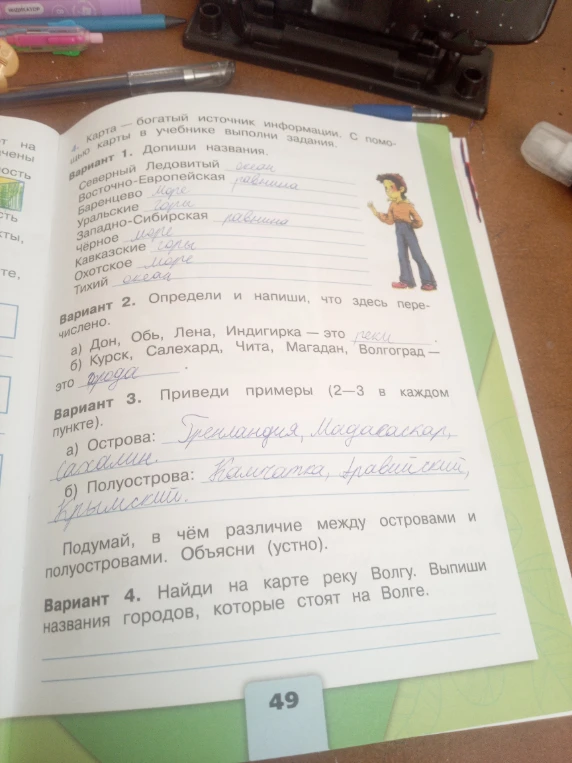 ет на
чены
ость
сть
кты,
те.
4. Карта — богатый источник информации. С помо-
щью карты в учебнике выполни задания.
Вариант 1. Допиши названия.
Северный Ледовитый океан
Восточно-Европейская равнина
Баренцево море
Уральские горы
Западно-Сибирская равнина
Чёрное море
Кавказские горы
Охотское море
Тихий океан
Вариант 2. Определи и напиши, что здесь пере-
числено.
а) Дон, Обь, Лена, Индигирка — это реки.
б) Курск, Салехард, Чита, Магадан, Волгоград —
это города.
Вариант 3. Приведи примеры (2—3 в каждом
пункте).
а) Острова: Гренландия, Мадагаскар,
Сахалин.
б) Полуострова: Камчатка, Аравийский,
Крымский.
Подумай, в чём различие между островами и
полуостровами. Объясни (устно).
Вариант 4. Найди на карте реку Волгу. Выпиши
названия городов, которые стоят на Волге.
49